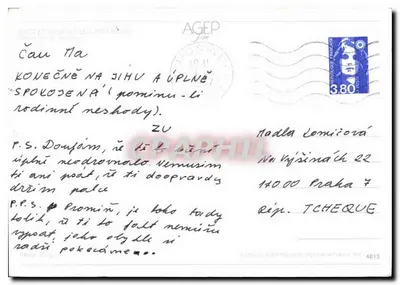 AGEP
Čau Ma
KONEČNĚ NA JIHU A ÚPLNĚ
SPOKOJENÁ (pominu-li
rodinné neshody).
ZU
P.S. Doufám, že ti
úplně neodrovnalo Nemusím
ti ani psát, že ti doopravdy
držím palce
P.P.S. Promiň, je toho tady
tolik, že ti to fakt nemůžu
vypsat, jako obykle si
radši pokecáme...
3.80
Madla
Na Výšinách 22
17000 Praha 7
Rép. TCHEQUE